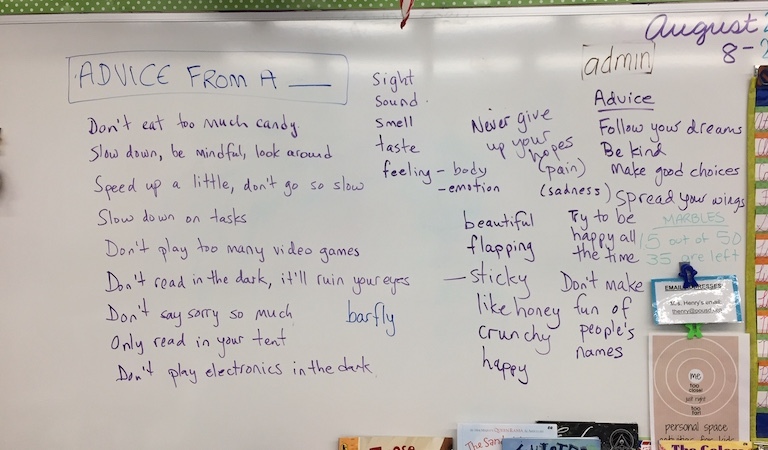 ADVICE FROM A ___
Don't eat too much candy.
Slow down, be mindful, look around
Speed up a little, don't go so slow
Slow down on tasks
Don't play too many video games
Don't read in the dark, it'll ruin your eyes
Don't say sorry so much
Only read in your tent
Don't play electronics in the dark
barfly
Sight
Sound
smell
taste
feeling - body
- emotion
(pain)
(sadness)
beautiful
flapping
sticky
like honey
crunchy
happy
Never give
up your
hopes
August
8-
admin
Advice
Follow your dreams
Be kind
Make good choices
Spread your wings
Try to be
happy all
the time
Don't make
fun of
people's
names
MARBLES
15 out of 50
35 are left
Ms. Henry's email
me
too
close
just right
too
far!
personal space
The